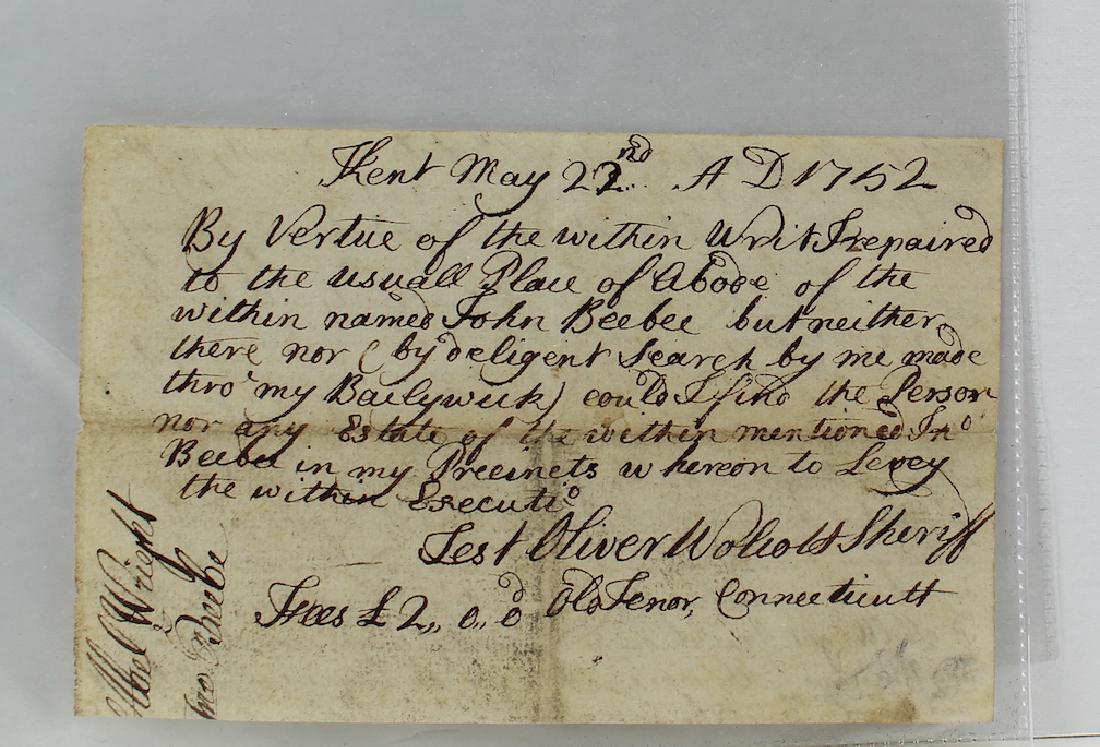 Kent May 22nd A D 1752
By Vertue of the within Writ I repaired
to the usuall Place of Abode of the
within named John Beebee but neither
there nor (by deligent Search by me made
thro' my Bailywick) could I find the Person
nor any Estate of the within mentioned Jno
Beebee in my Precincts whereon to Levey
the within Executio
Test Oliver Wolcott Sheriff
Fees £2,, 0,, 0d Old Tenor, Connecticutt
Wright
Beebe